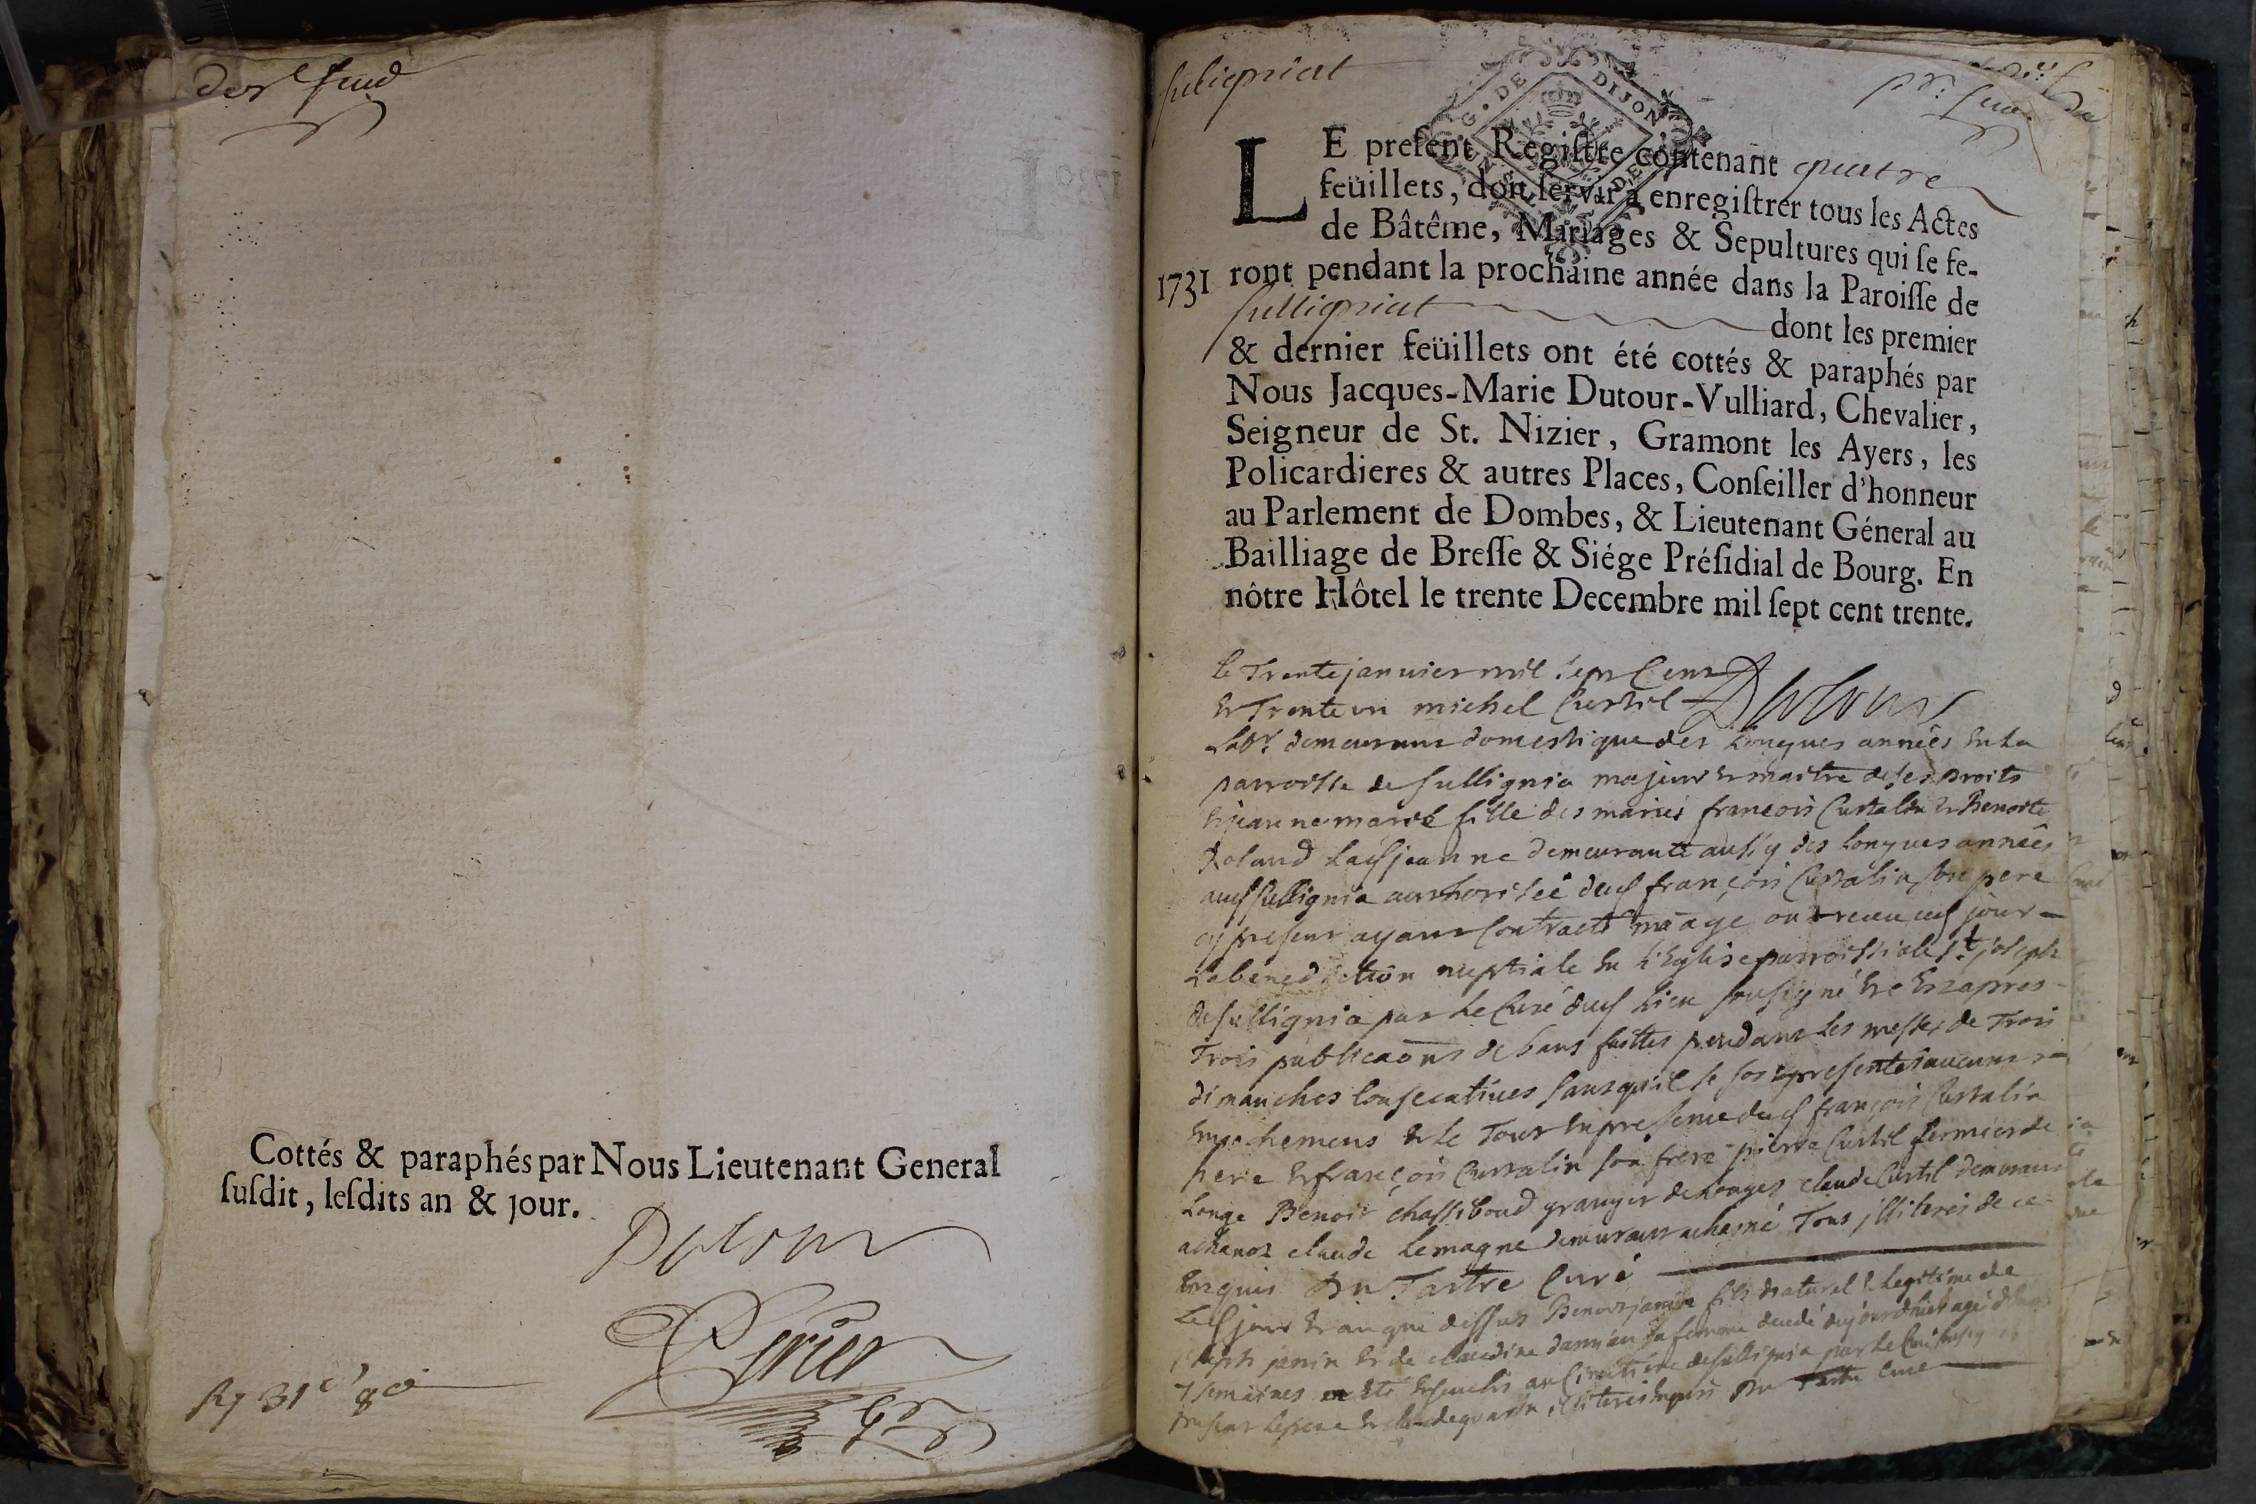 der feuil
Cottés & paraphés par Nous Lieutenant General
susdit, lesdits an & jour.
Dutour
Perier
Gr
suligniat
G. DE DIJON
pr. feuil
LE present Registre contenant quatre
feüillets, doit servir à enregistrer tous les Actes
de Bâtême, Mariages & Sepultures qui se fe-
1731 ront pendant la prochaine année dans la Paroisse de
sulligniat dont les premier
& dernier feüillets ont été cottés & paraphés par
Nous Jacques-Marie Dutour-Vulliard, Chevalier,
Seigneur de St. Nizier, Gramont les Ayers, les
Policardieres & autres Places, Conseiller d'honneur
au Parlement de Dombes, & Lieutenant Géneral au
Bailliage de Bresse & Siége Présidial de Bourg. En
nôtre Hôtel le trente Decembre mil sept cent trente.
Dutour
le Trente janvier mil sept Cent
et Trente un michel Curtil
Labr. demeurant domestique des longues années en la
parroisse de sullignia majeur et maitre de ses droits
et jeanne marie fille des mariés françois Curtalin et Benoite
Roland lad jeanne demeurante aussy des longues années
aud sullignia authorisée dud françois Curtalin son pere
cy present ayant Contracté mãage ont receu ced jour
La benediction nuptiale en l'Eglise parroissiale st joseph
de sullignia par le Curé dud lieu sousigné et ce apres
Trois publicaõns de bans faittes pendant les messes de Trois
dimanches Consecutives sans qu'il se soit presenté aucuns
empechemens et le Tout en presence dud françois Curtalin
pere et françois Curtalin son frere pierre Curtil fermier de
Longe Benoit chassiboud granger de longes claude Curtil demeurant
a chanoz claude Lemagne demeurant a chamé Tous illiterés de ce
Enquis Du Tartre Curé
Led jour et an que dessus Benoit janin fils naturel et legitime de
joseph janin et de claudine danjean sa femme decedé du jour d'hier agé de
7 semaines a eté enseveli au Cimetiere de sullignia par le Curé
present le pere et claude illiterés enquis Du Tartre Curé